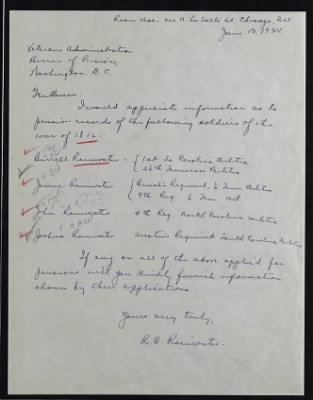 Room 1202. One N. La Salle St. Chicago, Ill.
June 13, 1934
Veterans Administration
Bureau of Pensions
Washington, D.C.
Gentlemen:
I would appreciate information as to
pension records of the following soldiers of the
war of 1812:
Burrell Rainwater - { 1st So Carolina Militia
26th Tennessee Militia
James Rainwater { Regiment, E. Tenn Militia
4th Reg E. Tenn Mil
John Rainwater 4th Reg North Carolina Militia
Joshua Rainwater Austin's Regiment South Carolina Militia
If any or all of the above applied for
pensions will you kindly furnish information
shown by their applications
Yours very truly,
Rainwater.